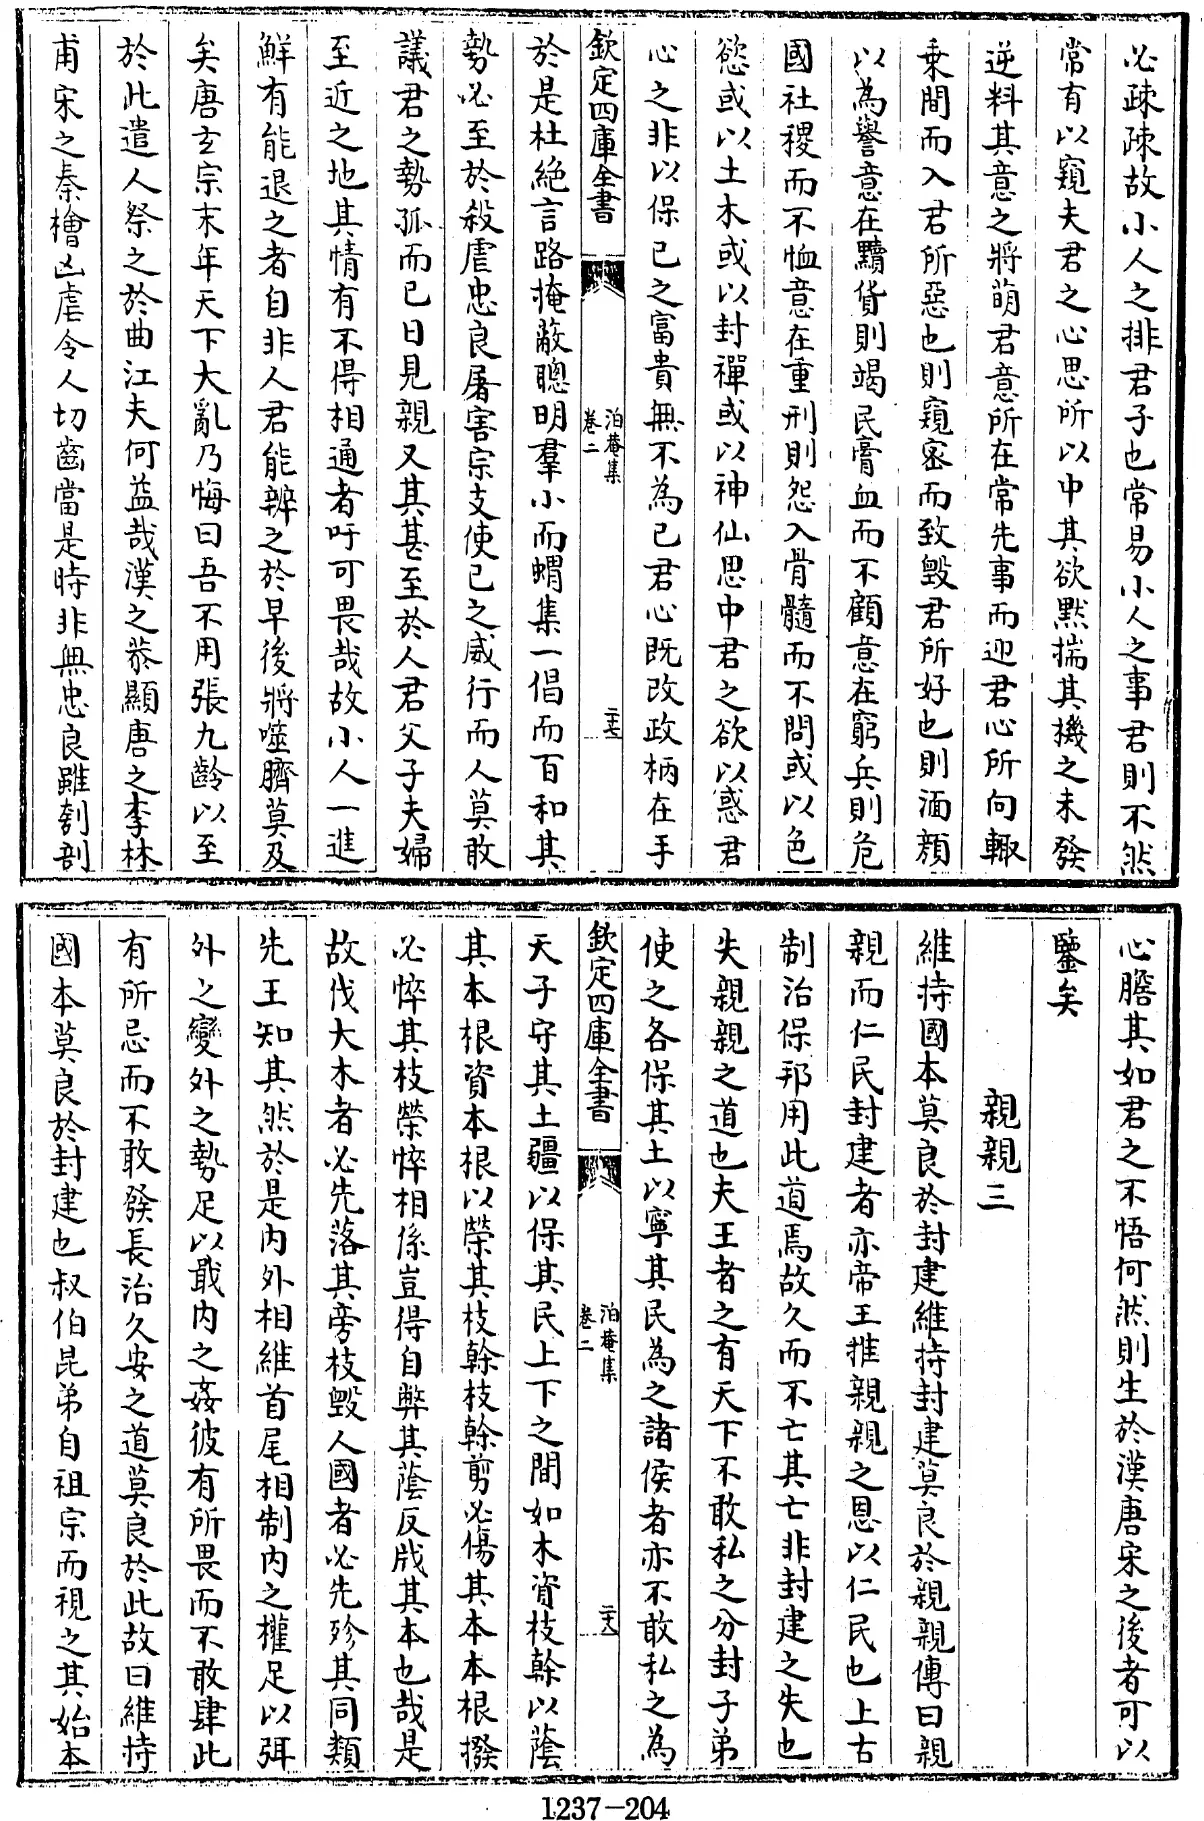 必疎疎故小人之排君子也常易小人之事君則不然
常有以窺夫君之心思所以中其欲黙揣其機之未發
逆料其意之將萌君意所在常先事而迎君心所向輙
乗間而入君所惡也則窺宻而致毁君所好也則湎顔
以為譽意在黷貨則竭民膏血而不顧意在窮兵則危
國社稷而不恤意在重刑則怨入骨髓而不問或以色
慾或以土木或以封禪或以神仙思中君之欲以惑君
心之非以保已之富貴無不為已君心既改政柄在手
欽定四庫全書
泊菴集
卷二
二十七
於是杜絶言路掩蔽聰明羣小而蝟集一倡而百和其
勢必至於殺虐忠良屠害宗支使已之威行而人莫敢
議君之勢孤而已日見親又其甚至於人君父子夫婦
至近之地其情有不得相通者吁可畏哉故小人一進
鮮有能退之者自非人君能辨之於早後將噬臍莫及
矣唐玄宗末年天下大亂乃悔曰吾不用張九齡以至
於此遣人祭之於曲江夫何益哉漢之恭顯唐之李林
甫宋之秦檜凶虐令人切齒當是時非無忠良雖刳剖
心膽其如君之不悟何然則生於漢唐宋之後者可以
鑒矣
親親三
維持國本莫良於封建維持封建莫良於親親傳曰親
親而仁民封建者亦帝王推親親之恩以仁民也上古
制治保邦用此道焉故久而不亡其亡非封建之失也
失親親之道也夫王者之有天下不敢私之分封子弟
使之各保其土以寧其民為之諸侯者亦不敢私之為
欽定四庫全書
泊菴集
卷二
二十八
天子守其土疆以保其民上下之間如木資枝榦以蔭
其本根資本根以榮其枝榦枝榦剪必傷其本本根撥
必悴其枝榮悴相係豈得自弊其蔭反戕其本也哉是
故伐大木者必先落其旁枝毁人國者必先殄其同類
先王知其然於是内外相維首尾相制内之權足以弭
外之變外之勢足以戢内之姦彼有所畏而不敢肆此
有所忌而不敢發長治久安之道莫良於此故曰維持
國本莫良於封建也叔伯昆弟自祖宗而視之其始本
1237-204